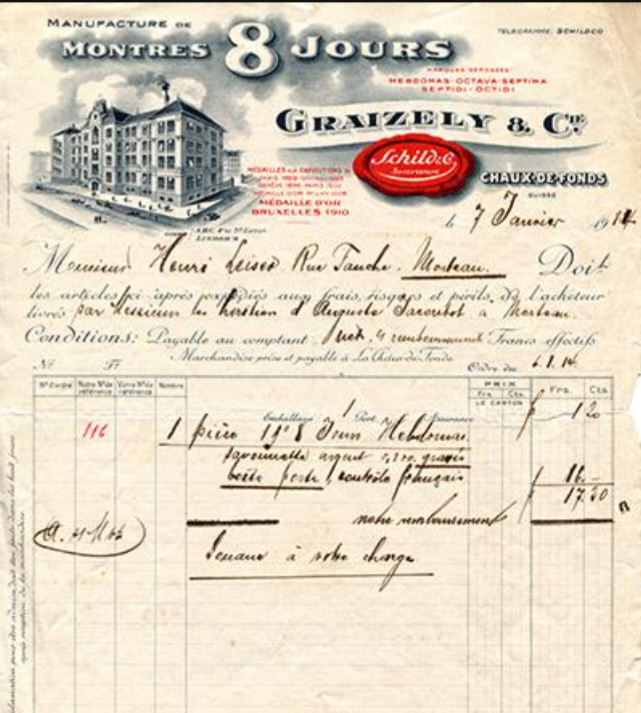 MANUFACTURE DE
MONTRES 8 JOURS
TELEGRAMME, SCHILDCO
MARQUES DÉPOSÉES
HEBDOMAS-OCTAVA-SEPTIMA
SEPTIDI-OCTIDI
GRAIZELY & CIE
Schild & Co.
Successeurs
CHAUX-DE-FONDS
SUISSE
MÉDAILLES AUX EXPOSITIONS
MÉDAILLE D'OR
BRUXELLES 1910
le 7 Janvier 1914
Monsieur Henri Leiser Rue Tanche. Morteau. Doit
les articles ci-après expédiés aux frais, risques et périls de l'acheteur
livrés par Messieurs les héritiers d'Auguste à Morteau.
Conditions: Payable au comptant. remboursement Francs effectifs
Marchandise prise et payable à La Chaux-de-Fonds
No Ft Ordre du 6.1.14.
No d'ordre Notre No de référence Votre No de référence Nombre PRIX Frs. Cts. LE CARTON Frs. Cts.
Emballage Port Assurance 1 20
116 1 pièce 19''' 8 Jours Hebdomas
savonnette argent gravée
boîte forte, contrôle français 16.-
17.20
notre remboursement
à votre charge